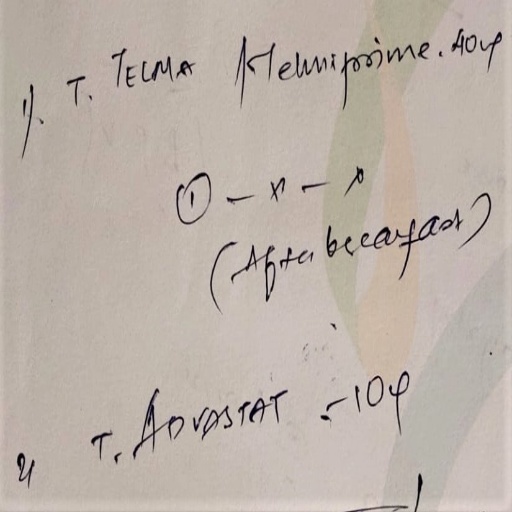 1). T. TELMA / Telmiprime. 40
① - x - x
(After breakfast)
2) T. ADVASTAT - 10